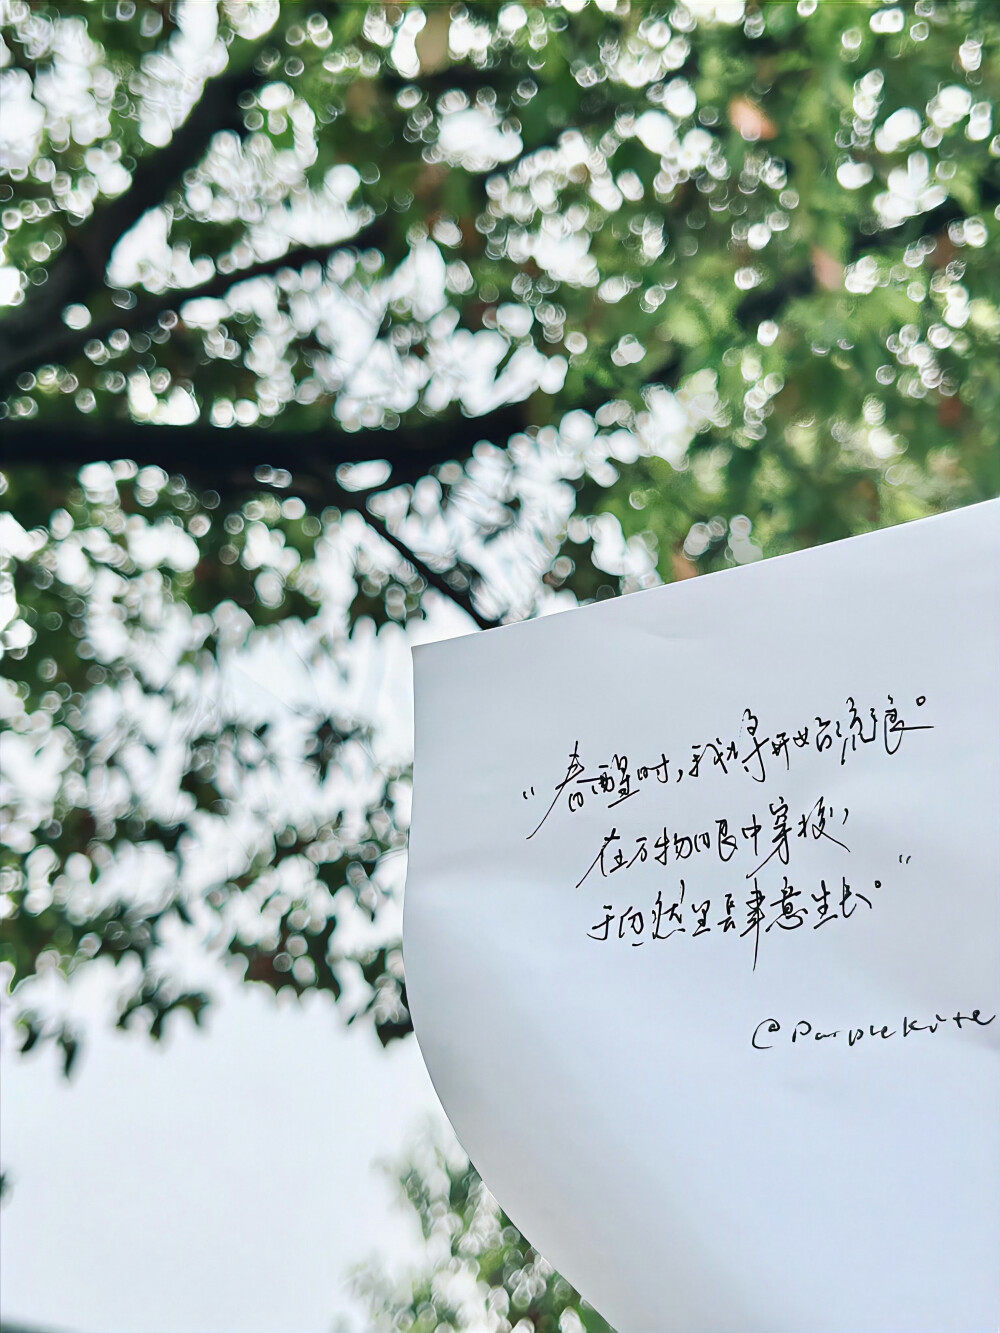 “春醒时,我将开始流浪。
在万物眼中穿梭,
于自然里肆意生长。”
@Purplekite